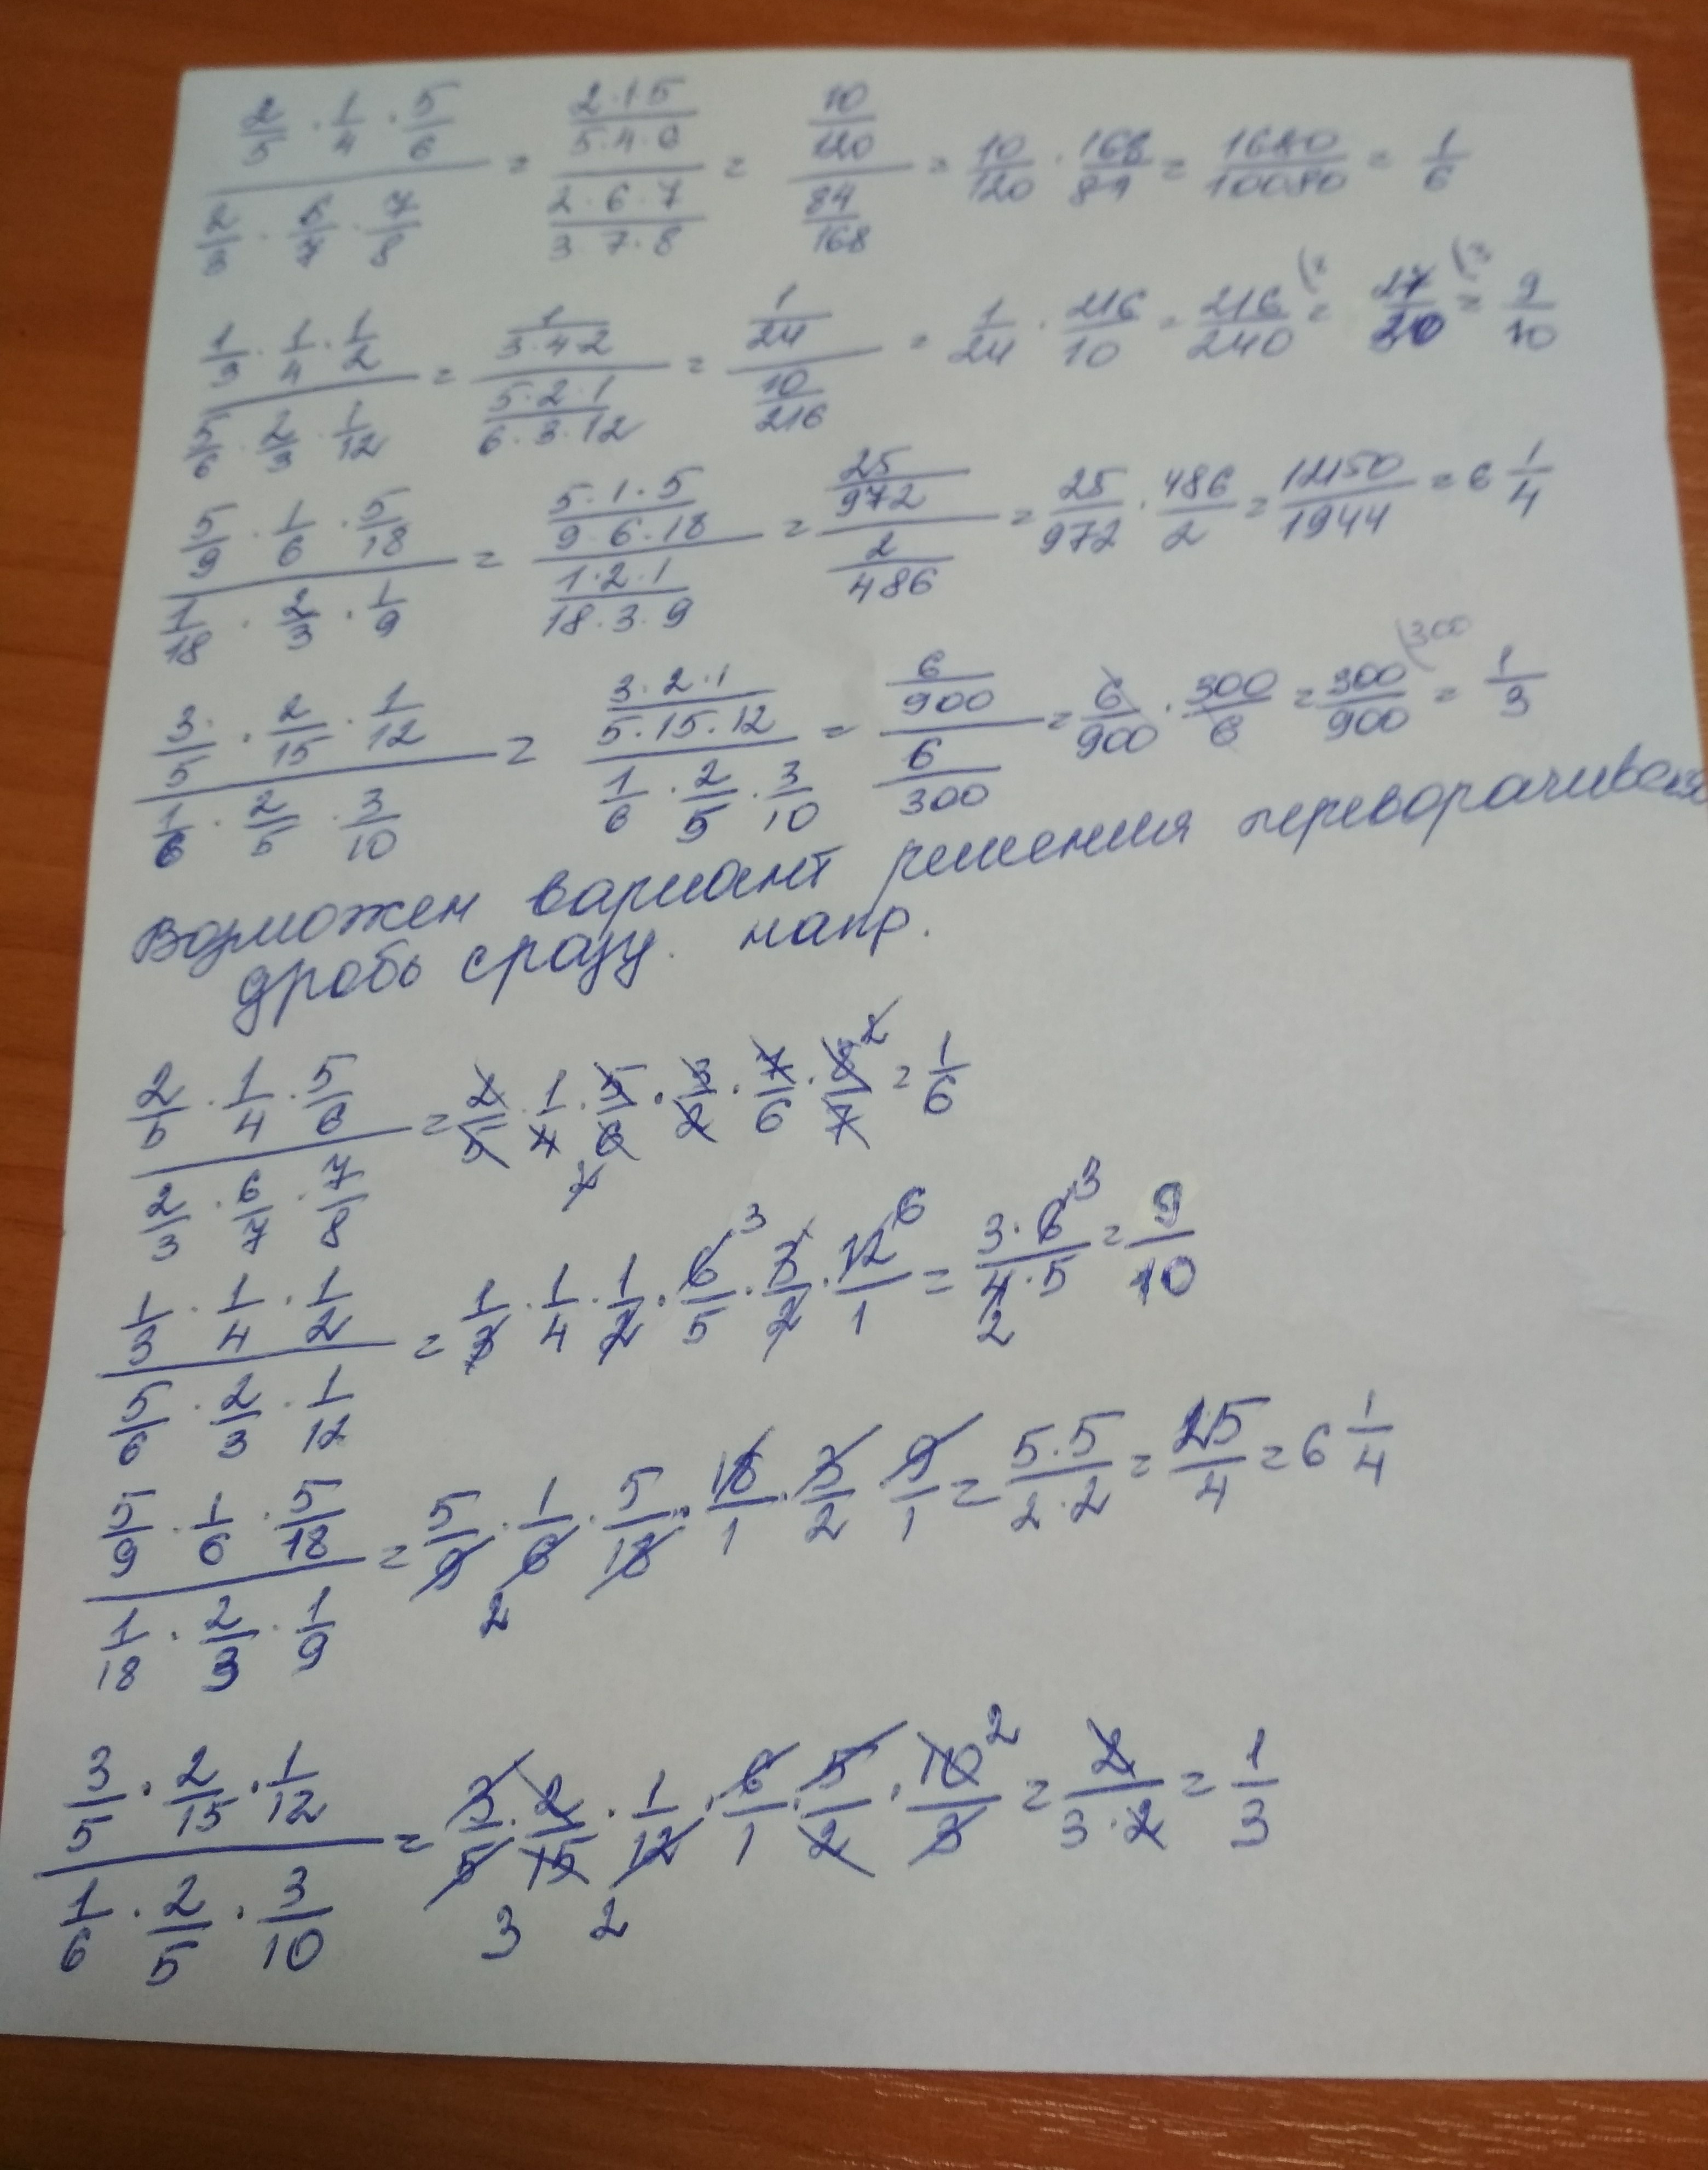 2/5 · 1/4 · 5/6 / 2/3 · 6/7 · 7/8 = 2·1·5/5·4·6 / 2·6·7/3·7·8 = 10/120 / 84/168 = 10/120 · 168/84 = 1680/10080 = 1/6
1/3 · 1/4 · 1/2 / 5/6 · 2/3 · 1/12 = 1/3·4·2 / 5·2·1/6·3·12 = 1/24 / 10/216 = 1/24 · 216/10 = 216/240 = 27/30 = 9/10
5/9 · 1/6 · 5/18 / 1/18 · 2/3 · 1/9 = 5·1·5/9·6·18 / 1·2·1/18·3·9 = 25/972 / 2/486 = 25/972 · 486/2 = 12150/1944 = 6 1/4
3/5 · 2/15 · 1/12 / 1/6 · 2/5 · 3/10 = 3·2·1/5·15·12 / 1/6 · 2/5 · 3/10 = 6/900 / 6/300 = 6/900 · 300/6 = 300/900 (300 = 1/3
Возможен вариант решения переворачивая
дробь сразу. напр.
2/5 · 1/4 · 5/6 / 2/3 · 6/7 · 7/8 = 2/5 · 1/4 · 5/6 · 3/2 · 7/6 · 8/7 2 = 1/6
2
1/3 · 1/4 · 1/2 / 5/6 · 2/3 · 1/12 = 1/3 · 1/4 · 1/2 · 6/5 3 · 3/2 · 12/1 6 = 3·6/4·5 3 2 = 9/10
5/9 · 1/6 · 5/18 / 1/18 · 2/3 · 1/9 = 5/9 · 1/6 · 5/18 · 18/1 · 3/2 · 9/1 = 5·5/2·2 = 25/4 = 6 1/4
2
3/5 · 2/15 · 1/12 / 1/6 · 2/5 · 3/10 = 3/5 · 2/15 · 1/12 · 6/1 · 5/2 · 10/3 2 = 2/3·2 = 1/3
3 2